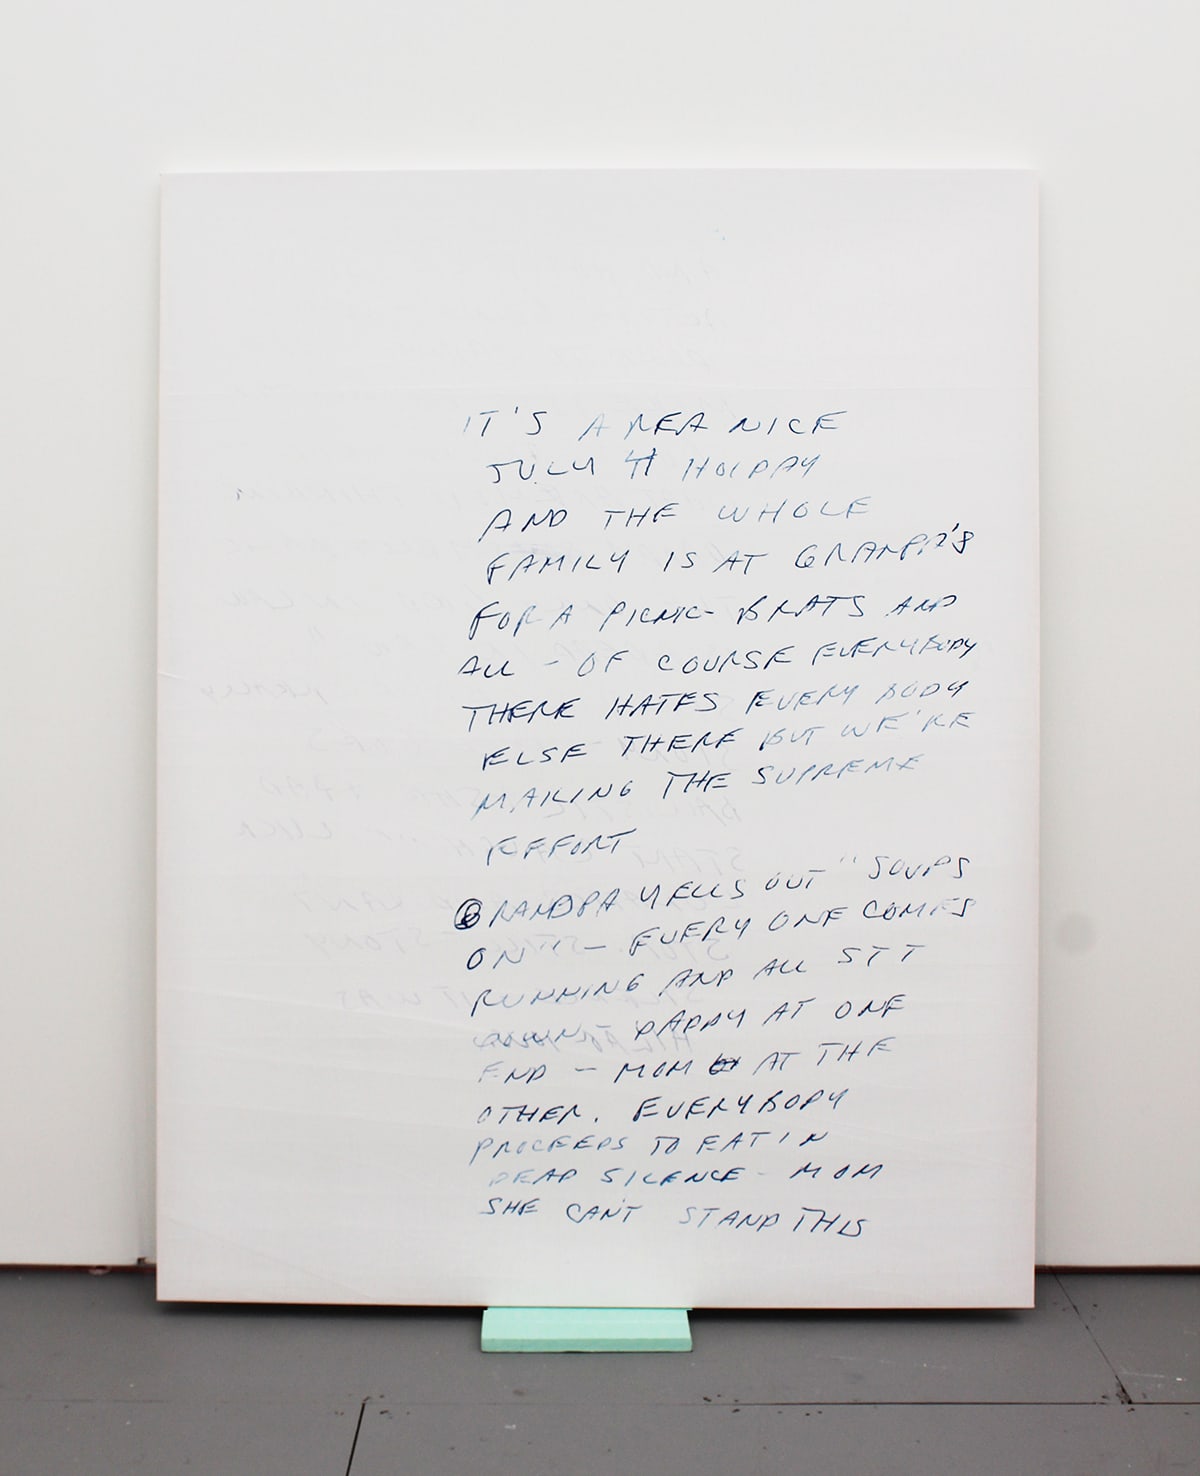 IT'S A REA NICE
JULY 4 HOLDAY
AND THE WHOLE
FAMILY IS AT GRANDPA'S
FOR A PICNIC - BRATS AND
ALL - OF COURSE EVERYBODY
THERE HATES EVERY BODY
ELSE THERE BUT WE'RE
MAKING THE SUPREME
EFFORT
GRANDPA YELLS OUT "SOUPS
ON" - EVERY ONE COMES
RUNNING AND ALL SIT
DOWN - DADDY AT ONE
END - MOM AT THE
OTHER. EVERYBODY
PROCEEDS TO EAT IN
DEAD SILENCE - MOM
SHE CAN'T STAND THIS